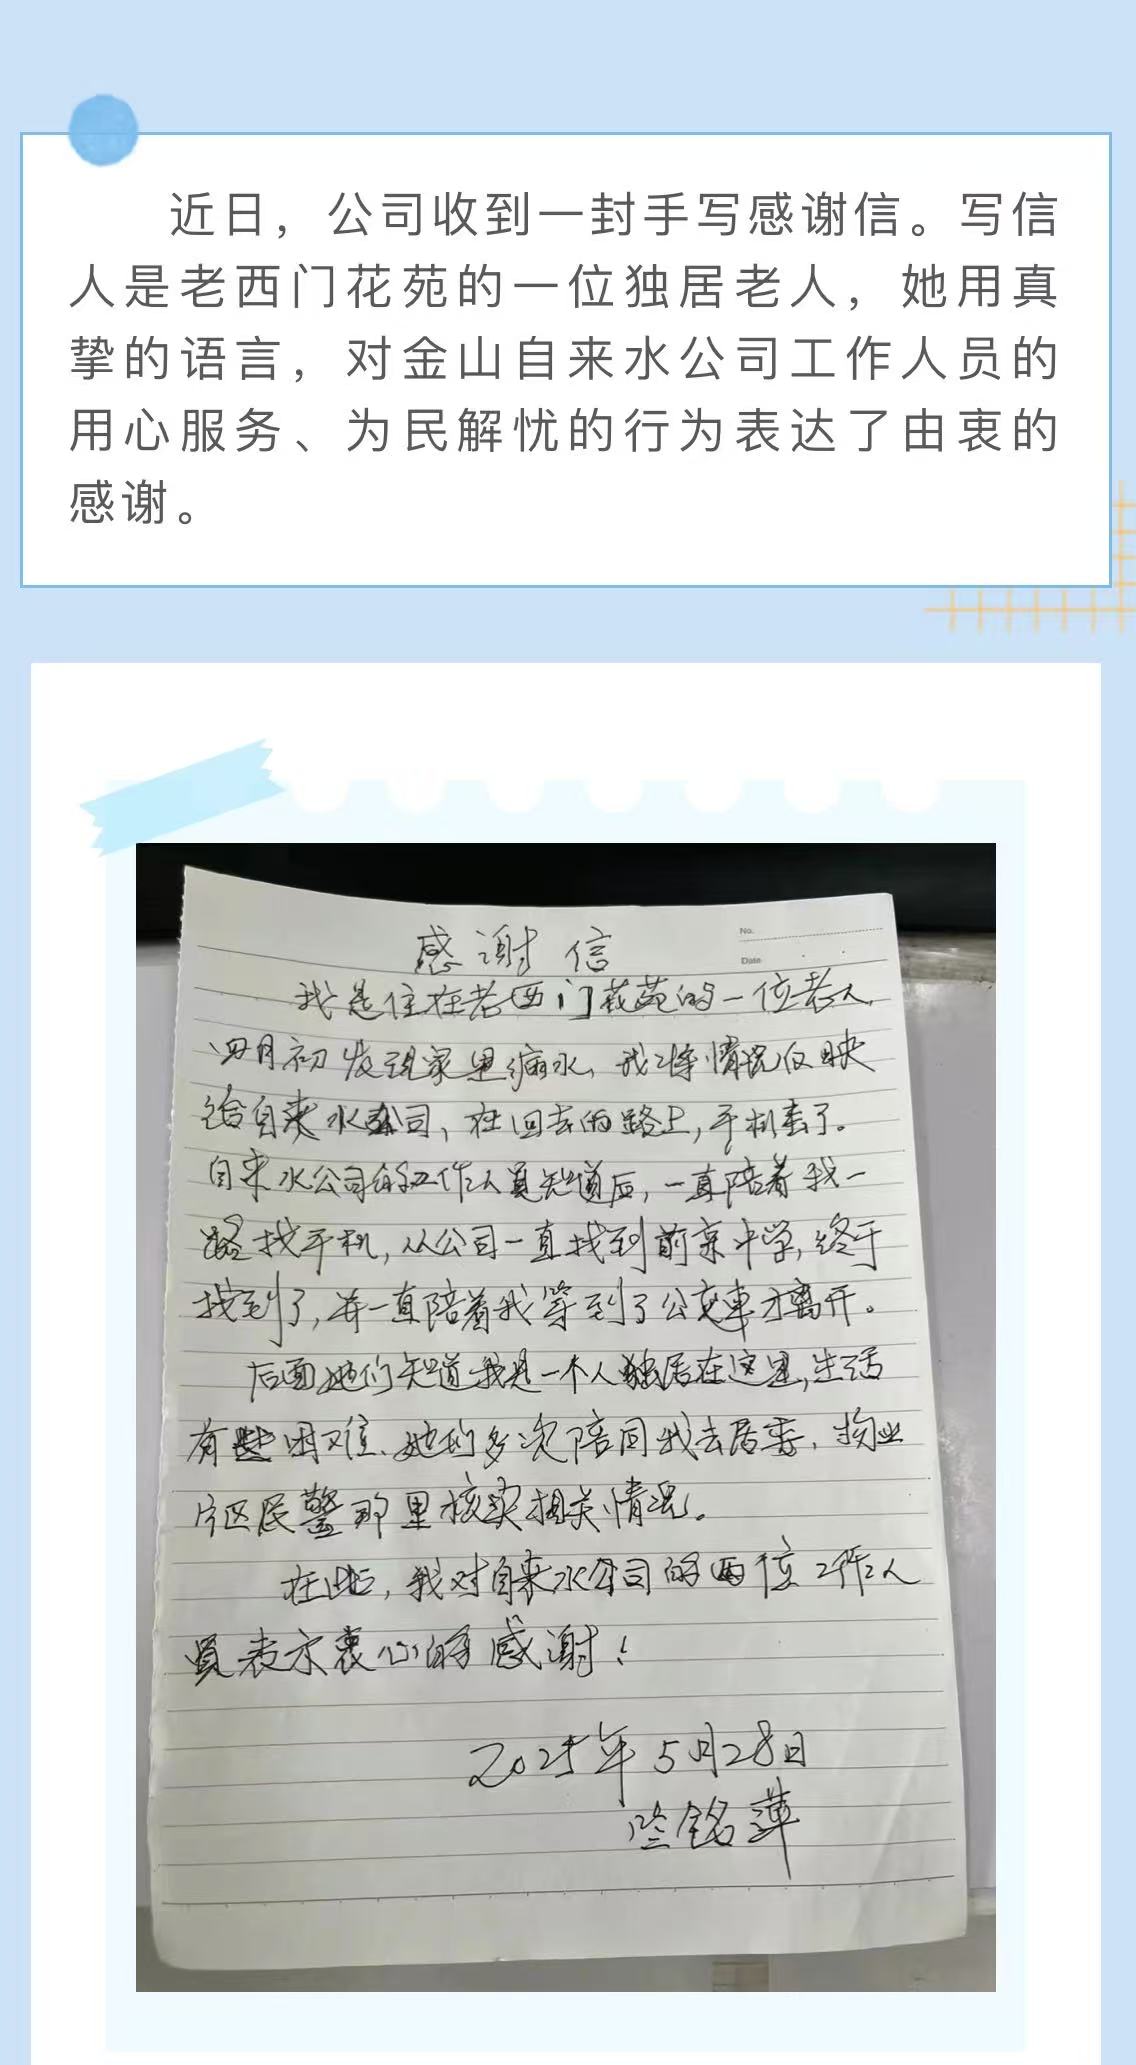 近日，公司收到一封手写感谢信。写信
人是老西门花苑的一位独居老人，她用真
挚的语言，对金山自来水公司工作人员的
用心服务、为民解忧的行为表达了由衷的
感谢。
No.
Date
感谢信
我是住在老西门花苑的一位老人，
四月初发现家里漏水，我将情况反映
给自来水公司，在回去的路上，手机丢了。
自来水公司的工作人员知道后，一直陪着我一
路找手机，从公司一直找到前京中学，终于
找到了，并一直陪着我等到了公交車才离开。
后面她们知道我是一个人独居在这里，生活
有些困难、她们多次陪同我去居委、物业
片区民警那里核实相关情况。
在此，我对自来水公司的两位工作人
员表示衷心的感谢！
2025年5月28日
铭萍